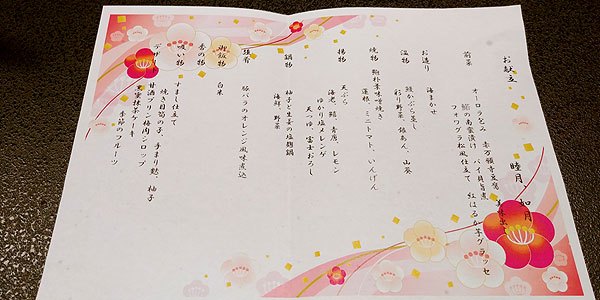 お献立
睦月、如月
前菜
オーロラ包み 赤万願寺豆腐
鮨の南蛮漬け バイ貝旨煮
フォワグラ松風仕立て 紅はるか芋グラッセ
お造り
海まかせ
温物
蕪かぶら蒸し
彩り野菜、銀あん、山葵
焼物
鮑朴葉味噌焼き
蓮根、ミニトマト、いんげん
揚物
天ぷら
海老、鱚、青唐、レモン
ゆかり塩メレンゲ
天つゆ、富士おろし
鍋物
柚子と生姜の塩麹鍋
海鮮、野菜
強肴
豚バラのオレンジ風味煮込
御飯物
白米
香の物
吸い物
すまし仕立て
焼き目筍の子、手まり麩、柚子
デザート
甘酒プリン梅肉シロップ
黒蜜抹茶ケーキ
季節のフルーツ